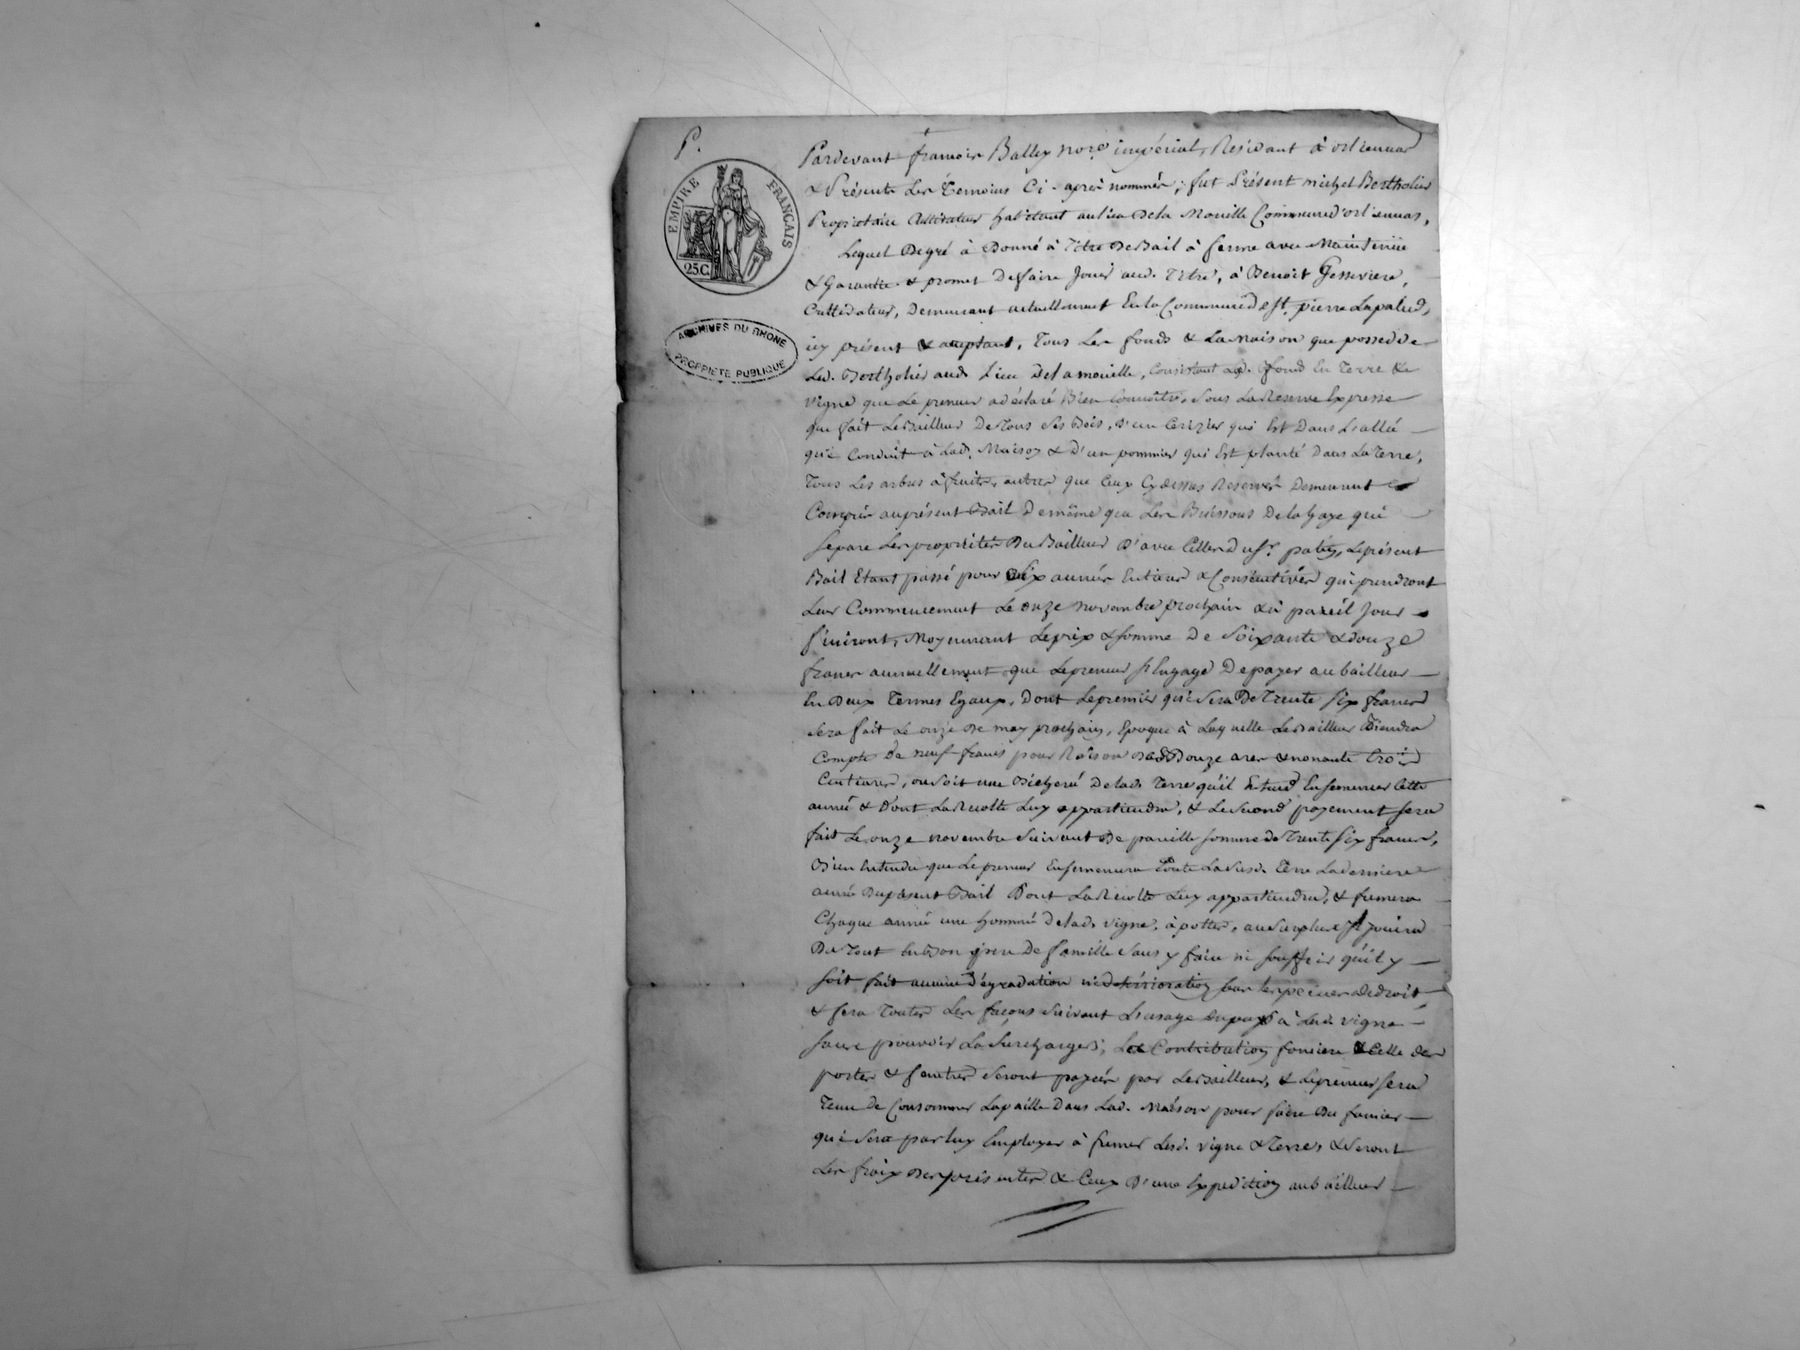 P.
EMPIRE FRANÇAIS
25 C.
ARCHIVES DU RHONE
PROPRIETE PUBLIQUE
Pardevant françois Balley nore impérial, Résidant à orlienas
& Présents Les Témoins Ci-après nommés; fut Présent michel Bertholier
Propriétaire Cultivateur habitant au lieu De la Mouille Commune d'orlienas,
Lequel De gré à Donné à Titre De Bail à ferme avec Maintenüe
& Garantie & promet De faire Jouir aud. Titre, à Benoit
Cultivateur, Demeurant actuellement En la Commune de St. pierre Lapalud,
icy présent & acceptant, Tous Les fonds & La Maison que possedde
Led. Bertholier aud. Lieu De la mouille, Consistant Lesd. fonds En Terre &
vigne que Le preneur a déclaré Bien Connoitre, Sous La Reserve Expresse
que fait Le Bailleur De Tous Ses Bois, D'un Cerizier qui Est Dans L'allée
qui Conduit à Lad. Maison & D'un pommier qui Est planté Dans La Terre,
Tous Les arbres à fruits, autres que Ceux Cy dessus Reservés Demeurant
Compris au présent Bail De même que Les Buissons De la haye qui
Separe Les propriétés Du Bailleur D'avec Celles du Sr. Le présent
Bail Etant passé pour Six années Entieres & Consécutives qui prendront
Leur Commencement Le onze novembre prochain & à pareil Jour
finiront, Moyennant Le prix & Somme De Soixante & douze
francs annuellement que Le preneur S'Engage De payer au bailleur
En Deux Termes Egaux, Dont Le premier qui Sera De Trente Six francs
Sera fait Le onze De may prochain, Epoque à Laquelle Le Bailleur Tiendra
Compte de neuf francs pour Raison De Douze ares & nonante trois
Centiares, ou Soit une Bicherée De lad. Terre qu'il Entend Ensemencer Cette
année & Dont La Recolte Luy appartiendra, & Le Second payement Sera
fait Le onze novembre Suivant De pareille Somme de Trente Six francs,
Bien Entendu que Le preneur Ensemencera Toute La Susd. Terre La derniere
année Du présent Bail Dont La Recolte Luy appartiendra, & fumera
Chaque année une hommée De lad. vigne, au Surplus Jouira
Du Tout En Bon pere De famille Sans y faire ni Souffrir qu'il y
Soit fait aucune Dégradation ni détérioration Sous Les peines De droit,
& fera Toutes Les façons Suivant L'usage Du pays à Lad. vigne
Sans pouvoir La Surcharger; La Contribution fonciere & Celle des
portes & fenetres Seront payées par Le Bailleur, & Le preneur Sera
Tenu de Consommer La paille Dans Lad. Maison pour faire Du fumier
qui Sera par luy Employer à fumer Lesd. vigne & Terres & Seront
Les fraix Des présentes & Ceux D'une Expedition au bailleur